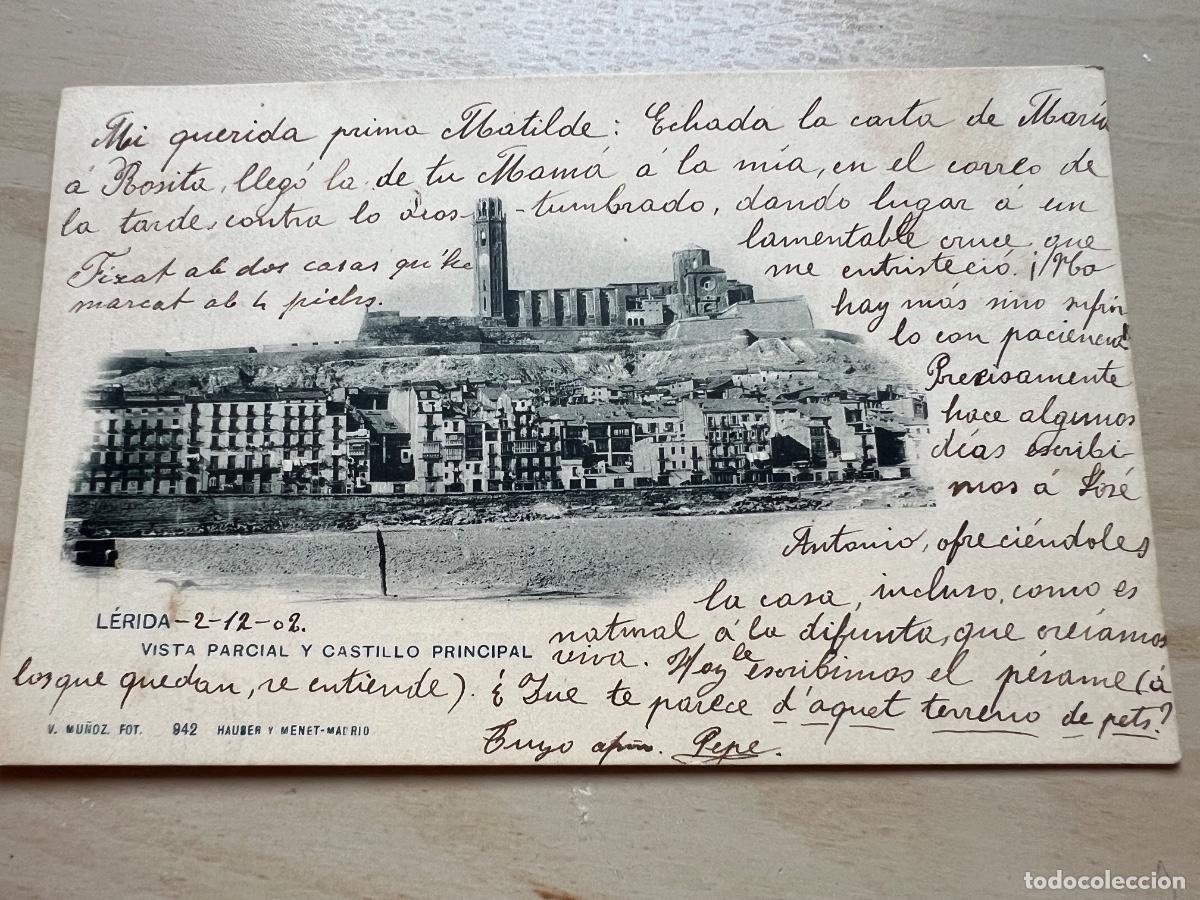 Mi querida prima Matilde: Echada la carta de María
á Rosita, llegó la de tu Mamá á la mía, en el correo de
la tarde, contra lo acos-tumbrado, dando lugar á un
lamentable cruce, que
me entristeció. ¡No
hay más sino sufrir
lo con paciencia!
Precisamente
hace algunos
días escribi-
mos á José
Antonio, ofreciéndoles
la casa, incluso, como es
natural á la difunta, que creíamos
viva. Hoy le escribimos el pésame (á
los que quedan, se entiende). ¿Que te parece d'aquet terreno de pets?
Tuyo apmo. Pepe.
Fixat ab dos casas qu'he
marcat ab 4 pichs.
LÉRIDA-2-12-02.
VISTA PARCIAL Y CASTILLO PRINCIPAL
V. MUÑOZ. FOT. 942 HAUSER Y MENET-MADRID
todocoleccion